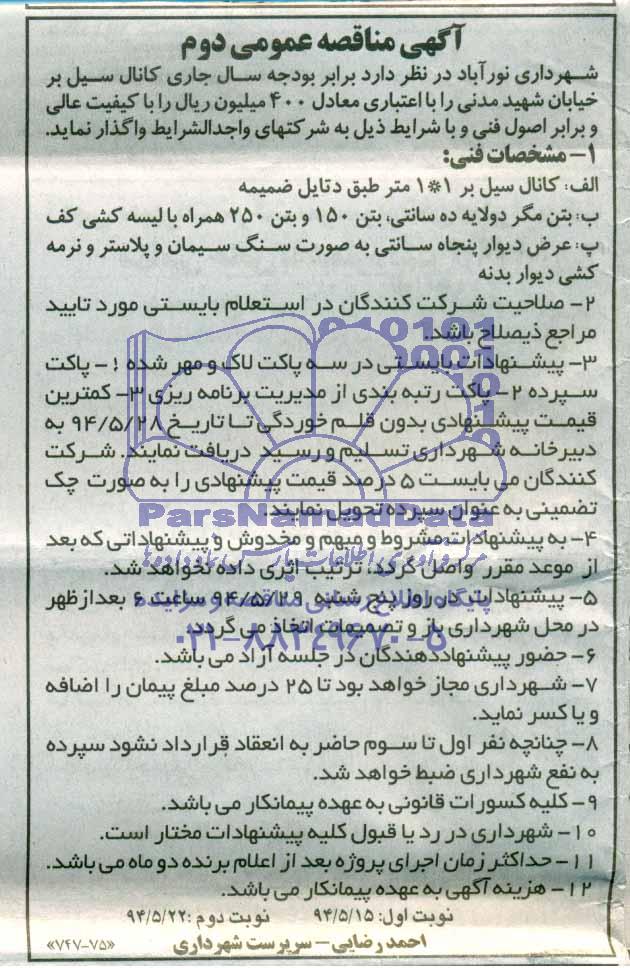 آگهی مناقصه عمومی دوم
شهرداری نورآباد در نظر دارد برابر بودجه سال جاری کانال سیل بر
خیابان شهید مدنی را با اعتباری معادل ۴۰۰ میلیون ریال را با کیفیت عالی
و برابر اصول فنی و با شرایط ذیل به شرکتهای واجدالشرایط واگذار نماید.
۱- مشخصات فنی:
الف: کانال سیل بر ۱*۱ متر طبق دتایل ضمیمه
ب: بتن مگر دولایه ده سانتی، بتن ۱۵۰ و بتن ۲۵۰ همراه با لیسه کشی کف
پ: عرض دیوار پنجاه سانتی به صورت سنگ سیمان و پلاستر و نرمه
کشی دیوار بدنه
۲- صلاحیت شرکت کنندگان در استعلام بایستی مورد تایید
مراجع ذیصلاح باشد.
۳- پیشنهادات بایستی در سه پاکت لاک و مهر شده ۱- پاکت
سپرده ۲- پاکت رتبه بندی از مدیریت برنامه ریزی ۳- کمترین
قیمت پیشنهادی بدون قلم خوردگی تا تاریخ ۹۴/۵/۲۸ به
دبیرخانه شهرداری تسلیم و رسید دریافت نمایند. شرکت
کنندگان می بایست ۵ درصد قیمت پیشنهادی را به صورت چک
تضمینی به عنوان سپرده تحویل نمایند.
۴- به پیشنهادات مشروط و مبهم و مخدوش و پیشنهاداتی که بعد
از موعد مقرر واصل گردد، ترتیب اثری داده نخواهد شد.
۵- پیشنهادات در روز پنج شنبه ۹۴/۵/۲۹ ساعت ۶ بعدازظهر
در محل شهرداری باز و تصمیمات اتخاذ می گردد.
۶- حضور پیشنهاددهندگان در جلسه آزاد می باشد.
۷- شهرداری مجاز خواهد بود تا ۲۵ درصد مبلغ پیمان را اضافه
و یا کسر نماید.
۸- چنانچه نفر اول تا سوم حاضر به انعقاد قرارداد نشود سپرده
به نفع شهرداری ضبط خواهد شد.
۹- کلیه کسورات قانونی به عهده پیمانکار می باشد.
۱۰- شهرداری در رد یا قبول کلیه پیشنهادات مختار است.
۱۱- حداکثر زمان اجرای پروژه بعد از اعلام برنده دو ماه می باشد.
۱۲- هزینه آگهی به عهده پیمانکار می باشد.
نوبت اول: ۹۴/۵/۱۵ نوبت دوم: ۹۴/۵/۲۲
احمد رضایی- سرپرست شهرداری
«۷۴۷-۷۵»
ParsNamadData
پایگاه اطلاع رسانی مناقصه و مزایده
۰۲۱-۸۸۳۴۹۶۷۰-۵